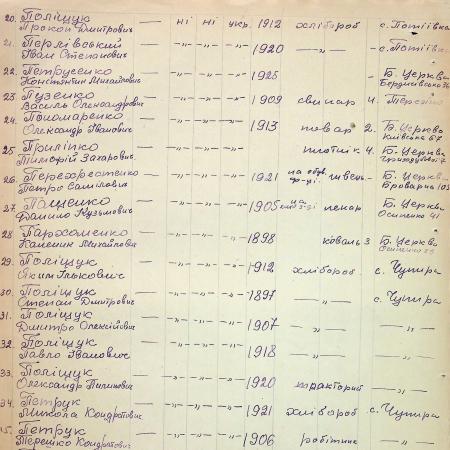 20. Поліщук — ні ні укр. 1912 хлібороб с. Потіївка
Прокоп Дмитрович
21. Перлівський — -"- -"- -"- 1920 — " — с. Потіївка
Іван Степанович
22. Петрусенко — -"- -"- -"- 1925 - Б. Церква
Костянтин Михайлович Бердичівська
23. Пузенко — -"- -"- -"- 1909 свинар 4.
Василь Олександрович
24. Пономаренко — -"- -"- -"- 1913 повар 2. Б. Церква
Олександр Іванович Київська 67
25. Приліпко -"- -"- -"- плотнік 4. Б. Церква
Тимофій Захарович
26. Перехрестенко -"- -"- -"- 1921 на обув. ф-ці швець - Б. Церква
Петро Самілович Броварна 103
27. Пащенко -"- -"- -"- 1905 пекар Б. Церква
Данило Кузьмович Осипенко 41
28. Пархоменко — -"- -"- -"- 1898 коваль 3 Б. Церква
Михайлович
29. Поліщук — -"- -"- -"- 1912 хлібороб — с. Чупира
Яким Ількович
30. Поліщук — -"- -"- -"- 1897 — " — с. Чупира
Степан Дмитрович
31. Поліщук — -"- -"- -"- 1907 — " — — " —
Дмитро Олексійович
32. Поліщук — -"- -"- -"- 1918 — " — — " —
Павло Іванович
33. Поліщук — -"- -"- -"- 1920 тракторист — " —
Олександр Пилипович
34. Петрук — -"- -"- -"- 1921 хлібороб с. Чупира
Микола Кондратович
Петрук — -"- -"- -"- 1906 робітник — " —
Терешко Кондратович